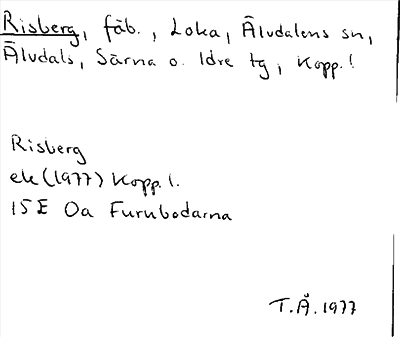 Risberg, fäb., Loka, Älvdalens sn,
Älvdals, Särna o. Idre tg, Kopp. l.
Risberg
ek (1977) Kopp. l.
15E 0a Furubodarna
T.Å. 1977